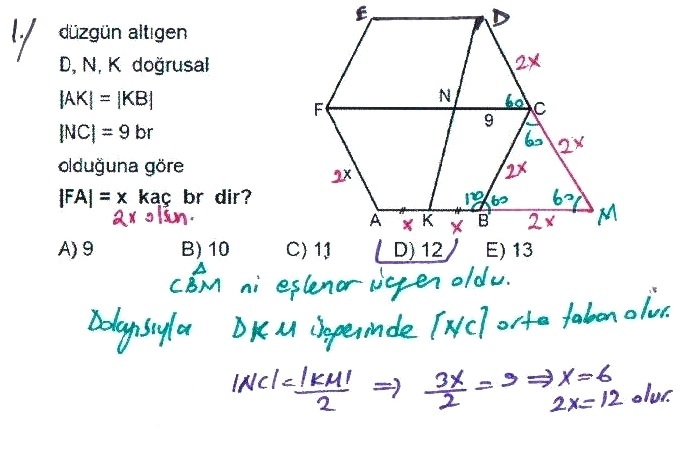 1./ düzgün altıgen
D, N, K doğrusal
|AK| = |KB|
|NC| = 9 br
olduğuna göre
|FA| = x kaç br dir?
2x olsun.
E D
2x
F N 60 C
9
60 2x
2x 2x
120 60 60
A x K x B 2x M
A) 9 B) 10 C) 11 D) 12 E) 13
CBM ni eşkenar üçgen oldu.
Dolayısıyla DKM üçgeninde [NC] orta taban olur.
|NC| = |KM| / 2 ⇒ 3x / 2 = 9 ⇒ x = 6
2x = 12 olur.